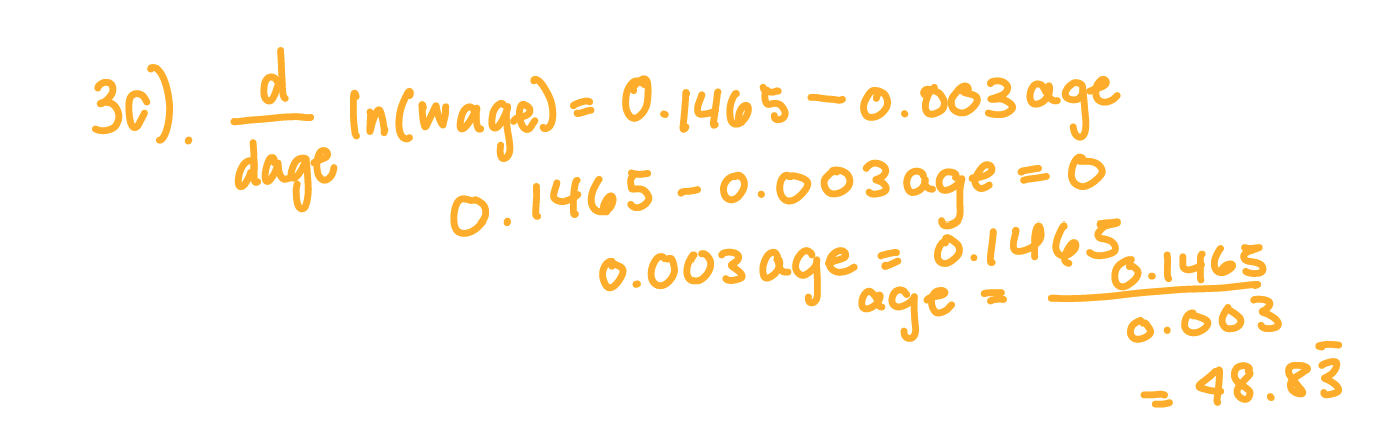 3c). d/dage ln(wage) = 0.1465 - 0.003age
0.1465 - 0.003age = 0
0.003age = 0.1465
age = 0.1465/0.003
= 48.83̅